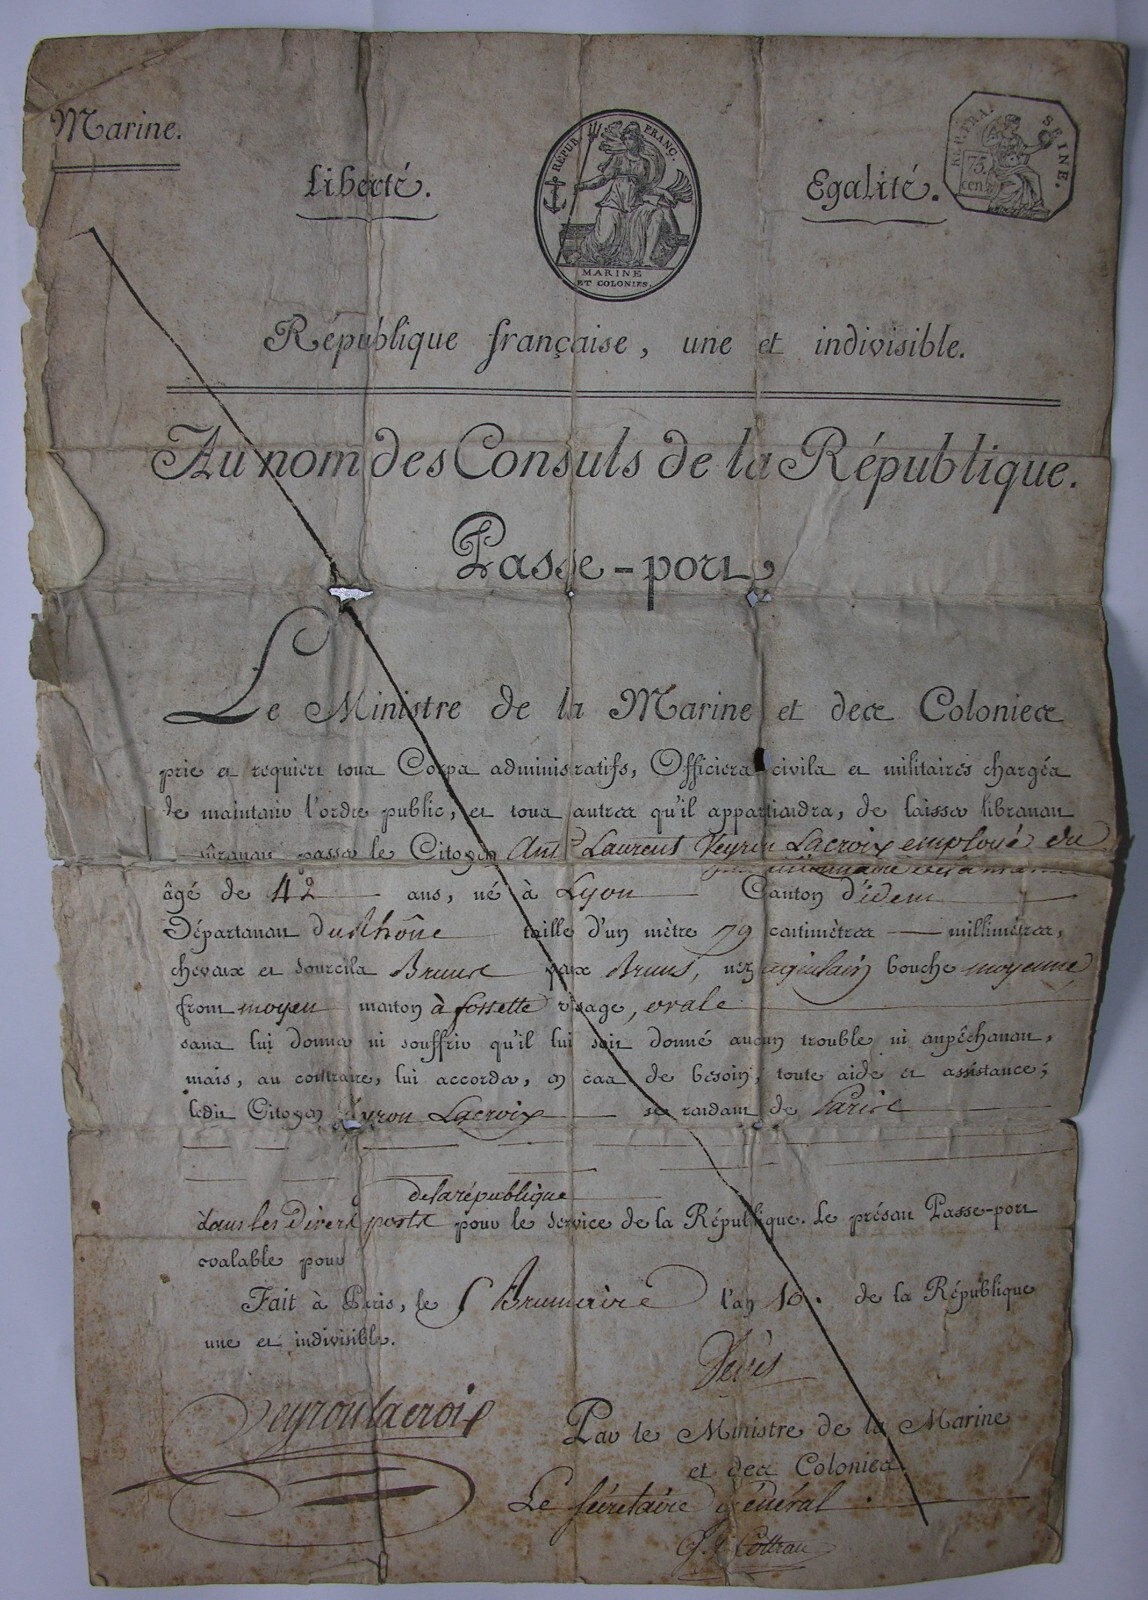 Marine.
Liberté.
RÉPUB. FRANC.
MARINE
ET COLONIES.
Egalité.
SEINE.
75
cen.
République française, une et indivisible.
Au nom des Consuls de la République.
Passe-port
Le Ministre de la Marine et des Colonies
prie et requiert tous Corps administratifs, Officiers civils et militaires chargés
de maintenir l'ordre public, et tous autres qu'il appartiendra, de laisser librement
passer le Citoyen Ant. Laurens Veyron Lacroix employé du
âgé de 42 ans, né à Lyon Canton d'idem
Département du Rhône taille d'un mètre 79 centimètres millimètres,
cheveux et sourcils Bruns yeux Bruns, nez aquilain bouche moyenne
front moyen menton à fossette visage, ovale
sans lui donner ni souffrir qu'il lui soit donné aucun trouble ni empêchement,
mais, au contraire, lui accorder, en cas de besoin, toute aide et assistance;
ledit Citoyen Veyron Lacroix se rendant de Paris
de la république
dans les divers ports pour le service de la République. Le présent Passe-port
valable pour
Fait à Paris, le 5 Brumaire l'an 10. de la République
une et indivisible.
Veyron Lacroix
Par le Ministre de la Marine
et des Colonies.
Le secrétaire Général